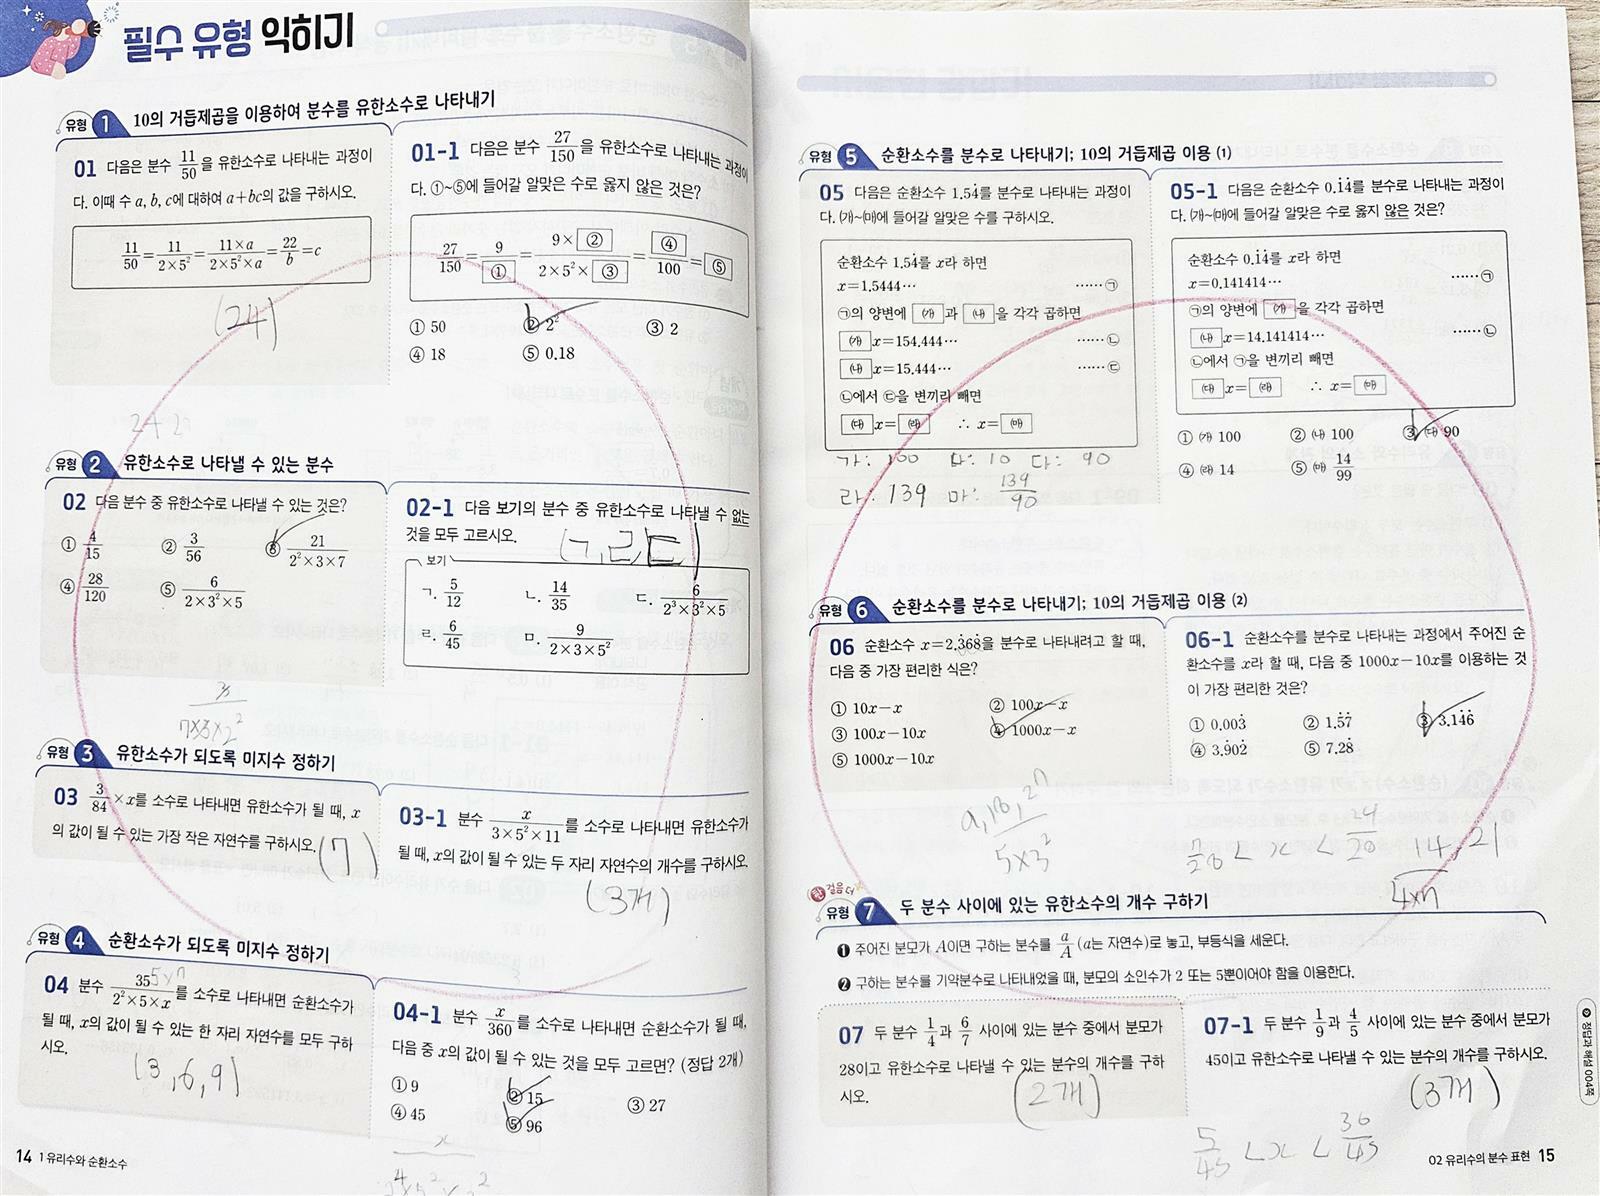 필수 유형 익히기
유형 1 10의 거듭제곱을 이용하여 분수를 유한소수로 나타내기
01 다음은 분수 11/50을 유한소수로 나타내는 과정이
다. 이때 수 a, b, c에 대하여 a+bc의 값을 구하시오.
11/50=11/2×5²=11×a/2×5²×a=22/b=c
(24)
01-1 다음은 분수 27/150을 유한소수로 나타내는 과정이
다. ①~⑤에 들어갈 알맞은 수로 옳지 않은 것은?
27/150=9/①=9×②/2×5²×③=④/100=⑤
① 50 ② 2² ③ 2
④ 18 ⑤ 0.18
유형 2 유한소수로 나타낼 수 있는 분수
02 다음 분수 중 유한소수로 나타낼 수 있는 것은?
① 4/15 ② 3/56 ③ 21/2²×3×7
④ 28/120 ⑤ 6/2×3²×5
3/7×3×2²
02-1 다음 보기의 분수 중 유한소수로 나타낼 수 없는
것을 모두 고르시오. (ㄱ,ㄹ,ㄷ)
보기
ㄱ. 5/12 ㄴ. 14/35 ㄷ. 6/2³×3²×5
ㄹ. 6/45 ㅁ. 9/2×3×5²
유형 3 유한소수가 되도록 미지수 정하기
03 3/84×x를 소수로 나타내면 유한소수가 될 때, x
의 값이 될 수 있는 가장 작은 자연수를 구하시오. (7)
03-1 분수 x/3×5²×11를 소수로 나타내면 유한소수가
될 때, x의 값이 될 수 있는 두 자리 자연수의 개수를 구하시오.
(3개)
유형 4 순환소수가 되도록 미지수 정하기
04 분수 35/2²×5×x를 소수로 나타내면 순환소수가
5×7
될 때, x의 값이 될 수 있는 한 자리 자연수를 모두 구하
시오.
(3,6,9)
04-1 분수 x/360를 소수로 나타내면 순환소수가 될 때,
다음 중 x의 값이 될 수 있는 것을 모두 고르면? (정답 2개)
① 9 ② 15 ③ 27
④ 45 ⑤ 96
14 1 유리수와 순환소수
유형 5 순환소수를 분수로 나타내기; 10의 거듭제곱 이용 (1)
05 다음은 순환소수 1.54̇를 분수로 나타내는 과정이
다. ㈎~㈒에 들어갈 알맞은 수를 구하시오.
순환소수 1.54̇를 x라 하면
x=1.5444⋯ ⋯⋯㉠
㉠의 양변에 ㈎과 ㈏을 각각 곱하면
㈎x=154.444⋯ ⋯⋯㉡
㈏x=15.444⋯ ⋯⋯㉢
㉡에서 ㉢을 변끼리 빼면
㈐x=㈑ ∴ x=㈒
가: 100 나: 10 다: 90
라: 139 마: 139/90
05-1 다음은 순환소수 0.1̇4̇를 분수로 나타내는 과정이
다. ㈎~㈒에 들어갈 알맞은 수로 옳지 않은 것은?
순환소수 0.1̇4̇를 x라 하면
x=0.141414⋯ ⋯⋯㉠
㉠의 양변에 ㈎을 각각 곱하면
㈏x=14.141414⋯ ⋯⋯㉡
㉡에서 ㉠을 변끼리 빼면
㈐x=㈑ ∴ x=㈒
① ㈎ 100 ② ㈏ 100 ③ ㈐ 90
④ ㈑ 14 ⑤ ㈒ 14/99
유형 6 순환소수를 분수로 나타내기; 10의 거듭제곱 이용 (2)
06 순환소수 x=2.3̇68̇을 분수로 나타내려고 할 때,
다음 중 가장 편리한 식은?
① 10x−x ② 100x−x
③ 100x−10x ④ 1000x−x
⑤ 1000x−10x
9,18,27/5×3²
06-1 순환소수를 분수로 나타내는 과정에서 주어진 순
환소수를 x라 할 때, 다음 중 1000x−10x를 이용하는 것
이 가장 편리한 것은?
① 0.003̇ ② 1.5̇7̇ ③ 3.14̇6̇
④ 3.9̇02̇ ⑤ 7.28̇
7/28<x<24/28 14,21
4×7
한 걸음 더
유형 7 두 분수 사이에 있는 유한소수의 개수 구하기
❶ 주어진 분모가 A이면 구하는 분수를 a/A(a는 자연수)로 놓고, 부등식을 세운다.
❷ 구하는 분수를 기약분수로 나타내었을 때, 분모의 소인수가 2 또는 5뿐이어야 함을 이용한다.
07 두 분수 1/4과 6/7 사이에 있는 분수 중에서 분모가
28이고 유한소수로 나타낼 수 있는 분수의 개수를 구하
시오. (2개)
07-1 두 분수 1/9과 4/5 사이에 있는 분수 중에서 분모가
45이고 유한소수로 나타낼 수 있는 분수의 개수를 구하시오.
(3개)
5/45<x<36/45
정답과 해설 004쪽
02 유리수의 분수 표현 15